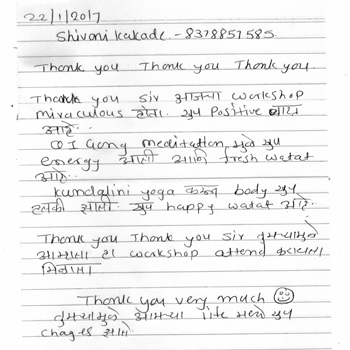 22/1/2017
Shivani Kakade - 8378851585
Thank you Thank you Thank you.
Thank you sir आजचा workshop
miraculous होता. खुप Positive वाटत
आहे.
QI Gong meditation मुळे खुप
energy आली आणि fresh watat
आहे.
Kundalini yoga करून body खुप
हलकी झाली. खुप happy watat आहे.
Thank you Thank you sir तुमच्यामुळे
आम्हाला हा workshop attend करायला
मिळाला.
Thank you very much
तुमच्यामुळे आमच्या life मध्ये खुप
chages झाले